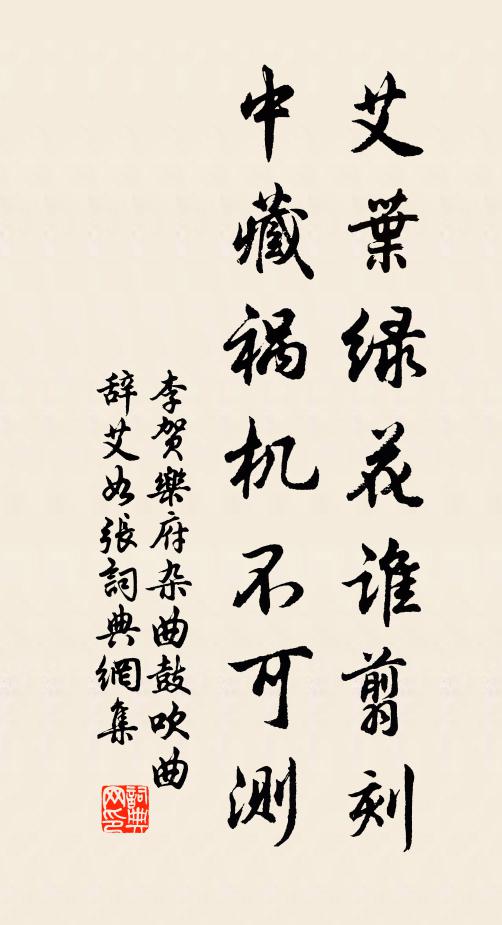 艾葉绿花谁剪刻
中藏祸机不可测
李贺樂府杂曲鼓吹曲
辞艾如張詞典網集
詞典网印